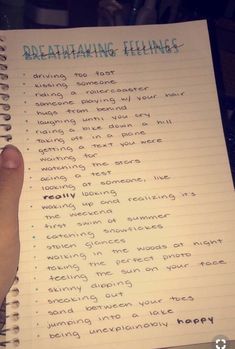 BREATHTAKING FEELINGS
• driving too fast
• kissing someone
• riding a rollercoaster
• someone playing w/ your hair
• hugs from behind
• laughing until you cry
• riding a bike down a hill
• taking off in a plane
• getting a text you were
waiting for
• watching the stars
• acing a test
• looking at someone, like
really looking
• waking up and realizing it's
the weekend
• first swim of summer
• catching snowflakes
• stolen glances
• walking in the woods at night
• taking the perfect photo
• feeling the sun on your face
• skinny dipping
• sneaking out
• sand between your toes
• jumping into a lake
• being unexplainably happy